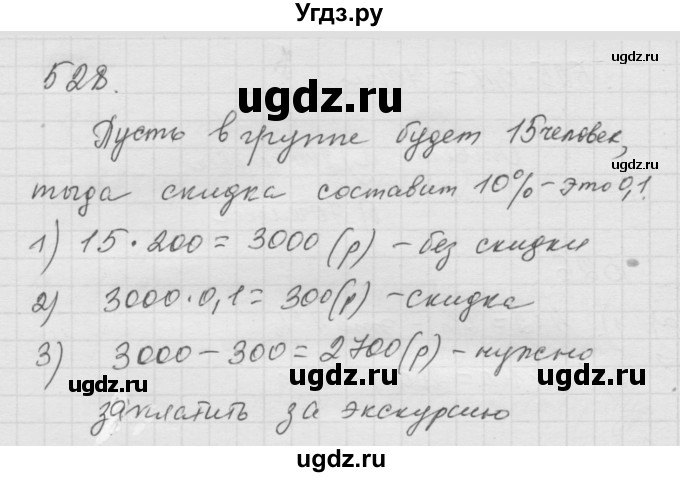 Угдз.ру
528.
ugdz.ru
ugdz.ru
Пусть в группе будет 15 человек,
ugdz.ru
тыда скидка составит 10% – это 0,1.
ugdz.ru
1) 15 · 200 = 3000 (р) – без скидки
2) 3000 · 0,1 = 300 (р) – скидка
ugdz.ru
3) 3000 – 300 = 2700 (р) – нужно
ugdz.ru
ugdz.ru
заплатить за экскурсию
ugdz.ru